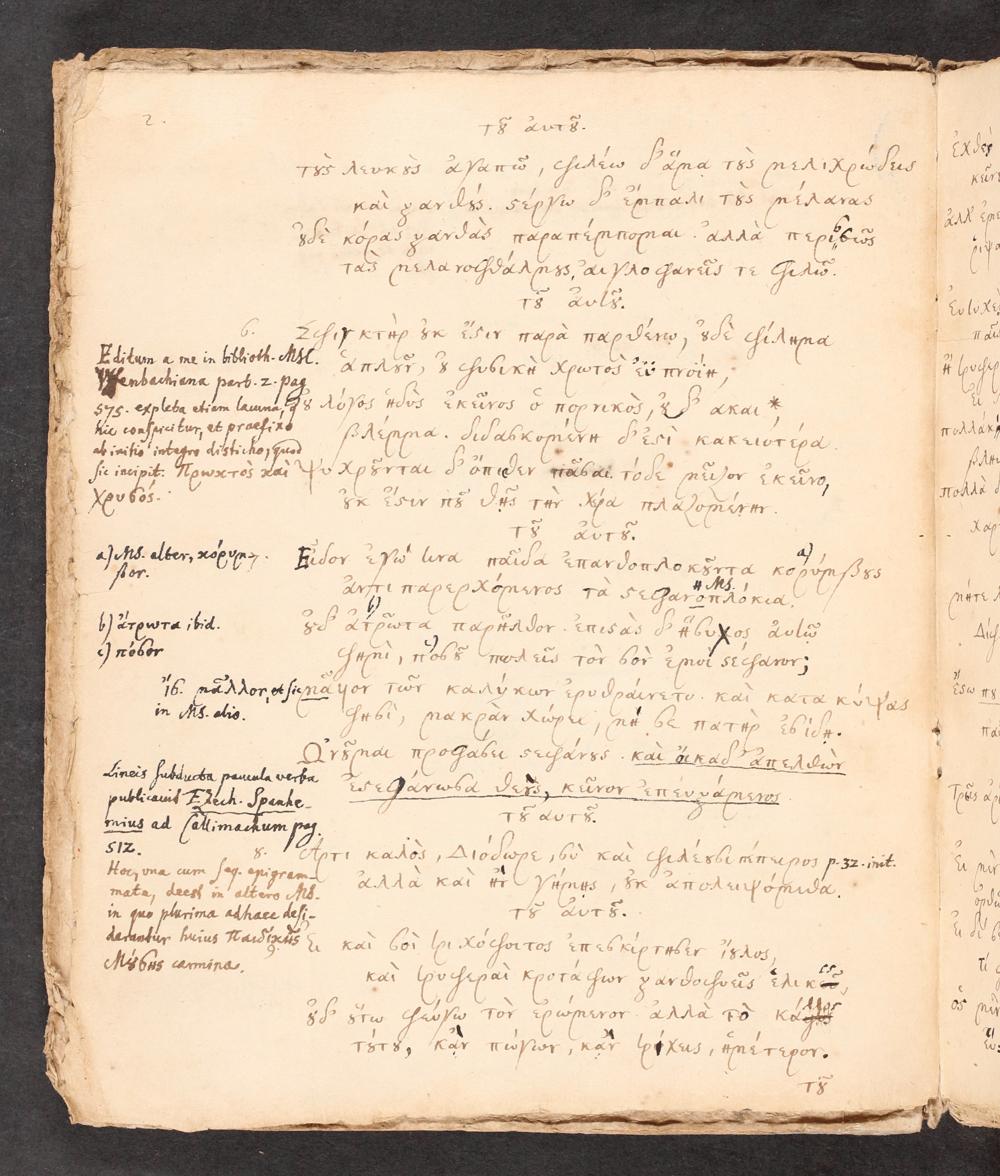 2.
τȣ͂ ἀυτȣ͂.
τȣ̀ς λευκȣ̀ς ἀγαπῶ, φιλέω δ' ἅμα τȣ̀ς μελιχρώδεις
καὶ ξανθȣ́ς. στέργω δ' ἔμπαλι τȣ̀ς μέλανας
ȣ̓δὲ κόρας ξανθὰς παραπέμπομαι. ἀλλὰ περισσῶς
τὰς μελανοφθάλμȣς, αἰγλοφανεῖς τε φιλῶ.
τȣ͂ ἀυτȣ͂.
6. Σφιγκτὴρ ȣ̓κ ἔστιν παρὰ παρθένῳ, ȣ̓δὲ φίλημα
ἁπλȣ͂ν, ȣ̓ φυσικὴ χρωτὸς ἐϋπνοίη,
ȣ̓ λόγος ἡδὺς ἐκεῖνος ὁ πορνικὸς, ȣ̓δ' ακαι *
βλέμμα. διδασκομένη δ' ἐστὶ κακειότέρα.
ψυχρȣ͂νται δ' ὄπιθεν πᾶσαι. τόδε μεῖζον ἐκεῖνο,
ȣ̓κ ἔστιν πȣ͂ θῇς τὴν χέρα πλαζομένην.
Editum a me in biblioth. MSC.
Uffenbachiana part. 2. pag
575. expleta etiam lacuna, q
hic conspicitur, et praefixo
ab initio integro disticho, quod
sic incipit. Πρωκτὸς καὶ
χρυσός.
τȣ͂ ἀυτȣ͂.
Εἶδον ἐγώ τινα παῖδα ἐπανθοπλοκȣ͂ντα κορύμβȣς a)
ἄρτι παρερχόμενος τὰ στεφανοπλόκια. η MS.
ȣ̓δ' ἄτρωτα b) παρῆλθον. ἐπιστὰς δ' ἥσυχος ἀυτῷ
φημὶ, πόσȣ c) πωλεῖς τὸν σὸν ἐμοὶ στέφανον;
μᾶλλον τῶν καλύκων ἐρυθραίνετο. καὶ κατακύψας
φησὶ, μακρὰν χώρει, μή σε πατὴρ ἐσίδῃ.
Ὠνȣ͂μαι προφάσει στεφάνȣς. καὶ οἴκαδ' ἀπελθὼν
ἐστεφάνωσα θεȣ̀ς, κεῖνον ἐπευξάμενος.
a) MS. alter, κόρυμ-
βον.
b) ἄτρωτα ibid.
c) πόσον
ib. μᾶλλον, et sic
in MS. alio.
Lineis subducta paucula verba
publicavit Ezech. Spanhe-
mius ad Callimachum pag.
512.
τȣ͂ αυτȣ͂.
8. Ἄρτι καλὸς, Διόδωρε, σὺ καὶ φιλέȣσι πέπειρος p. 32. init.
ἀλλὰ καὶ ἢν γήμῃς, ȣ̓κ ἀπολειψόμεθα.
Hoc, una cum seq. epigram-
mate, deest in altero MS.
in quo plurima adhaec desi-
derantur huius Παιδικῆς
Μȣ́σης carmina.
τȣ͂ ἀυτȣ͂.
9. Ει καὶ σοὶ τριχόφοιτος ἐπεσκίρτησεν ἴȣλος,
καὶ τρυφεραὶ κροτάφων ξανθοφυεῖς ἕλικες,
ȣ̓δ' ȣ̓́τω φεύγω τὸν ἐρώμενον. ἀλλὰ τὸ κάλλος
τȣ́τȣ, κἂν πώγων, κἂν τρίχες, ἡμέτερον.
τȣ͂